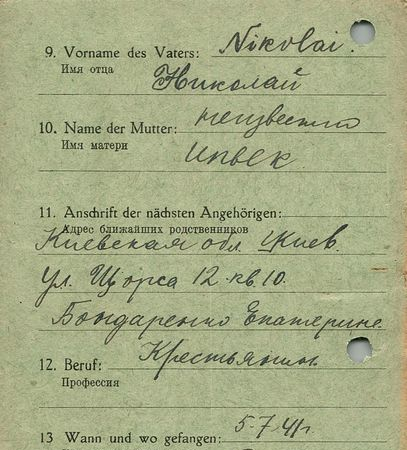 9. Vorname des Vaters: Nikolai.
Имя отца Николай
10. Name der Mutter: неизвестно
Имя матери
11. Anschrift der nächsten Angehörigen:
Адрес ближайших родственников
Киевская обл. г. Киев.
ул. Щорса 12 кв. 10.
Бондаренко Екатерине
12. Beruf: Крестьянин.
Профессия
13 Wann und wo gefangen: 5.7.41г.